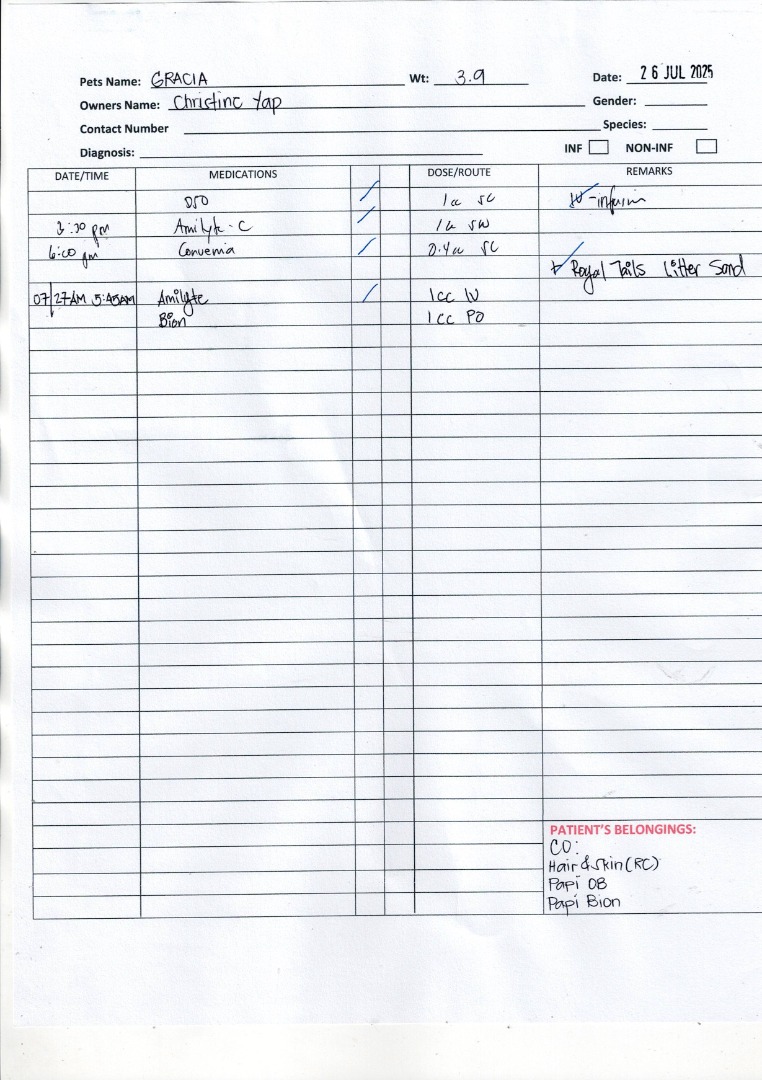 Pets Name: GRACIA Wt: 3.9 Date: 26 JUL 2025
Owners Name: Christine Yap Gender:
Contact Number Species:
Diagnosis: INF NON-INF
DATE/TIME MEDICATIONS DOSE/ROUTE REMARKS
D50 1cc
3:30 pm Amilyte-C 1cc
6:00 pm Convenia 0.4cc SC
Royal Tails Litter Sand
07/27AM 5:45AM Amilyte 1cc IV
Bion 1cc PO
PATIENT'S BELONGINGS:
CO:
Hair & Skin (RC)
Papi OB
Papi Bion